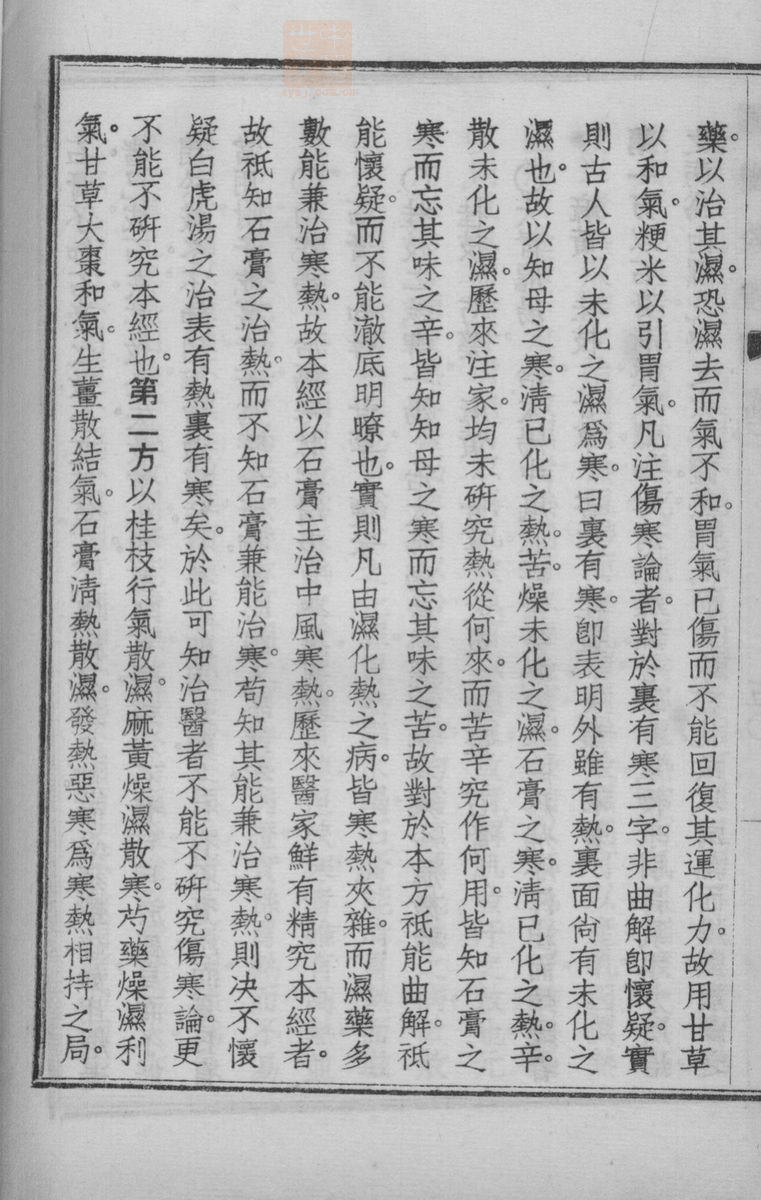 藥。以治其濕。恐濕去而氣不和。胃氣已傷而不能回復其運化力。故用甘草
以和氣。粳米以引胃氣。凡注傷寒論者。對於裏有寒三字。非曲解卽懷疑。實
則古人皆以未化之濕爲寒。曰裏有寒。卽表明外雖有熱。裏面尙有未化之
濕也。故以知母之寒。淸已化之熱。苦。燥未化之濕。石膏之寒。淸已化之熱。辛。
散未化之濕。歷來注家。均未硏究熱從何來。而苦辛究作何用。皆知石膏之
寒而忘其味之辛。皆知知母之寒而忘其味之苦。故對於本方祇能曲解。祇
能懷疑。而不能澈底明瞭也。實則凡由濕化熱之病。皆寒熱夾雜。而濕藥多
數能兼治寒熱。故本經以石膏主治中風寒熱。歷來醫家鮮有精究本經者。
故祇知石膏之治熱。而不知石膏兼能治寒。苟知其能兼治寒熱。則决不懷
疑白虎湯之治表有熱裏有寒矣。於此可知治醫者不能不硏究傷寒論。更
不能不硏究本經也。第二方以桂枝行氣散濕。麻黃燥濕散寒。芍藥燥濕利
氣。甘草大棗和氣。生薑散結氣。石膏淸熱散濕。發熱惡寒爲寒熱相持之局。